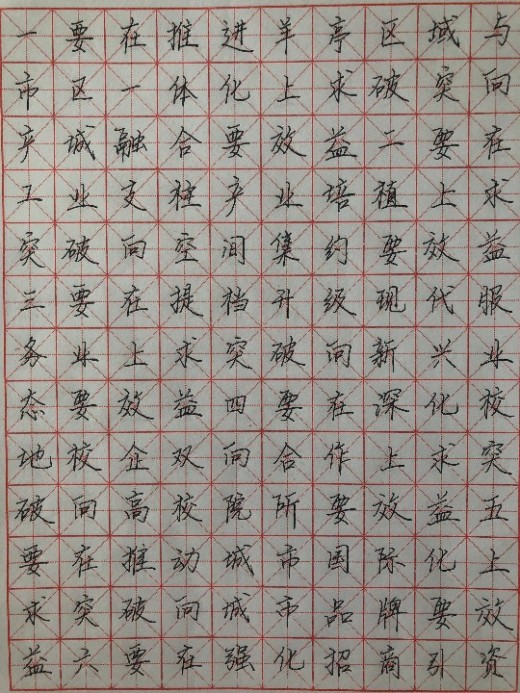 一要在推进羊亭区域与
市区一体化上求破突向
产城融合要效益二要在
工业支柱产业培植上求
突破向空间集约要效益
三要在提档升级现代服
务业上求突破向新兴业
态要效益四要在深化校
地校企双向合作上求突
破向高校院所要效益五
要在推动城市国际化上
求突破向城市品牌要效
益六要在强化招商引资